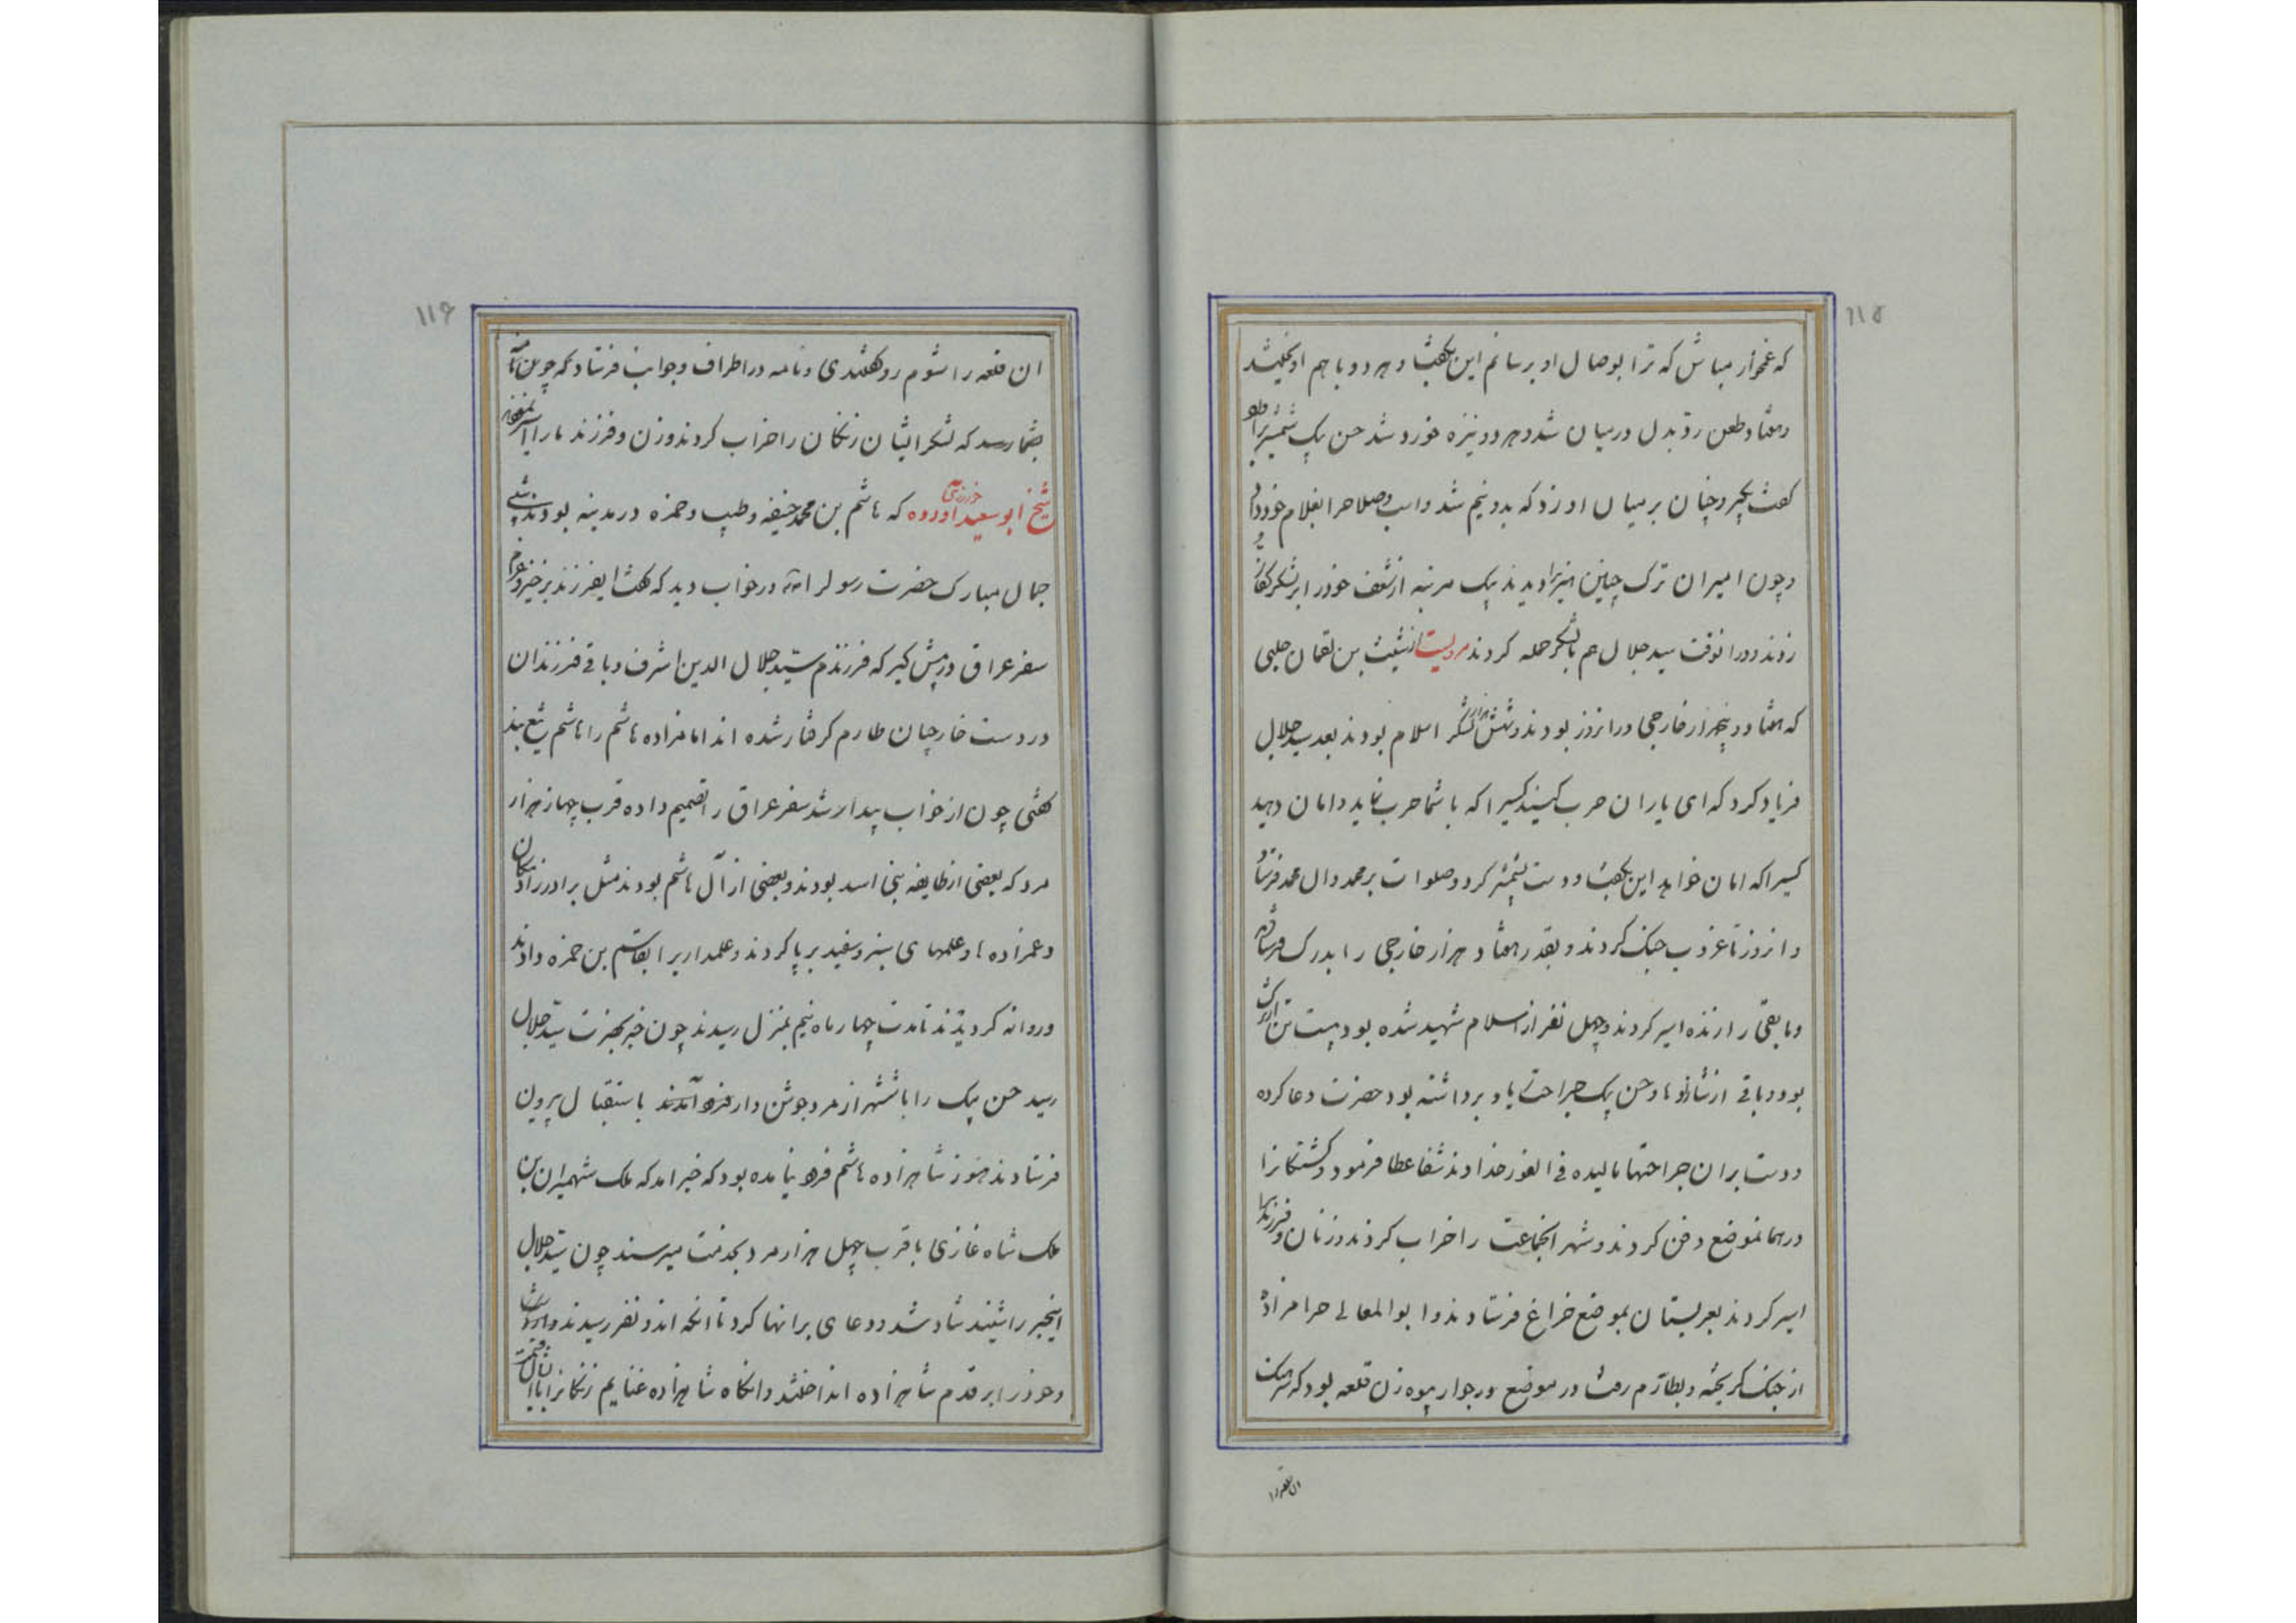 ۱۱۵
که غمخوار مباش که ترا بوصال او برسانم این بگفت و هر دو با هم اویختند
و هفتاد طعن رد و بدل در میان شد و هر دو نیزه خورد شد حسن بیک شمشیر برآورد
گفت بگیر و چنان بر میان او زد که بدو نیم شد و اسب و صلاح را بغلام خود داد
و چون امیران ترک چنین هنر را دیدند یک مرتبه از شعف خود را بر لشکر کفار
زدند و در انوقت سید جلال هم با لشکر حمله کردند مرویست از شیث بن لقمان حلبی
که هفتاد و پنجهزار خارجی در انروز بودند و شش هزار لشکر اسلام بودند بعد سید جلال
فریاد کرد که ای یاران حرب کنید کسیرا که با شما حرب نماید و امان دهید
کسیرا که امان خواهد این بگفت و دست بشمشیر کرد و صلوات بر محمد و ال محمد فرستاد
و انروز تا غروب جنگ کردند و بقدر هفتاد هزار خارجی را بدرک فرستاده
و مابقی را زنده اسیر کردند و چهل نفر از اسلام شهید شده بود بیست تن اتراک
بود و باقی از شانلوها و حسن بیک جراحت یاد برداشته بود حضرت دعا کرده
و دست بر ان جراحتها مالیده فی الفور خداوند شفا عطا فرمود و کشتگانرا
در همانموضع دفن کردند و شهر انجماعت را خراب کردند و زنان و فرزندانرا
اسیر کردند بعربستان بموضع خراغ فرستادند و ابوالمعالی حرامزاده
از جنگ گریخته و بطارم رفت در موضع و رجوار بیوه زن قلعه بود که سرهنگ
ان قلعه را
۱۱۶
ان قلعه را شوم رو گفتندی و نامه در اطراف و جوانب فرستاد که چون نامه
بشما رسد که لشکر ایشان زنگان را خراب کردند و زن و فرزند ما را اسیر
شیخ ابوسعید اورده که هاشم بن محمد حنیفه و طیب و حمزه در مدینه بودند شبی
جمال مبارک حضرت رسول را در خواب دید که گفت ایفرزند برخیز و عزم
سفر عراق در پیش گیر که فرزندم سید جلال الدین اشرف و باقی فرزندان
در دست خارجیان طارم گرفتار شده اند امامزاده هاشم را هاشم تیغ بند
گفتی چون از خواب بیدار شد سفر عراق را تصمیم داده قرب چهار هزار
مرد که بعضی از طایفه بنی اسد بودند و بعضی از آل هاشم بودند مثل برادرزادگان
و عمزاده ها و علمهای سبز و سفید بر پا کردند و علمدار را بقاسم بن حمزه دادند
و روانه گردیدند تا مدت چهار ماه نیم بمنزل رسیدند چون خبر بحضرت سید جلال
رسید حسن بیک را با ششهزار مرد جوشن دار باستقبال بیرون
فرستادند هنوز شاهزاده هاشم فرود نیامده بود که خبر امد که ملک شهمیران بن
ملک شاه غازی با قرب چهل هزار مرد بخدمت میرسند چون سید جلال
اینخبر را شنید شاد شد و دعای بر انها کرد تا انکه اندو نفر رسیدند
و خود را بر قدم شاهزاده انداختند و انگاه شاهزاده غنایم زنگانرا